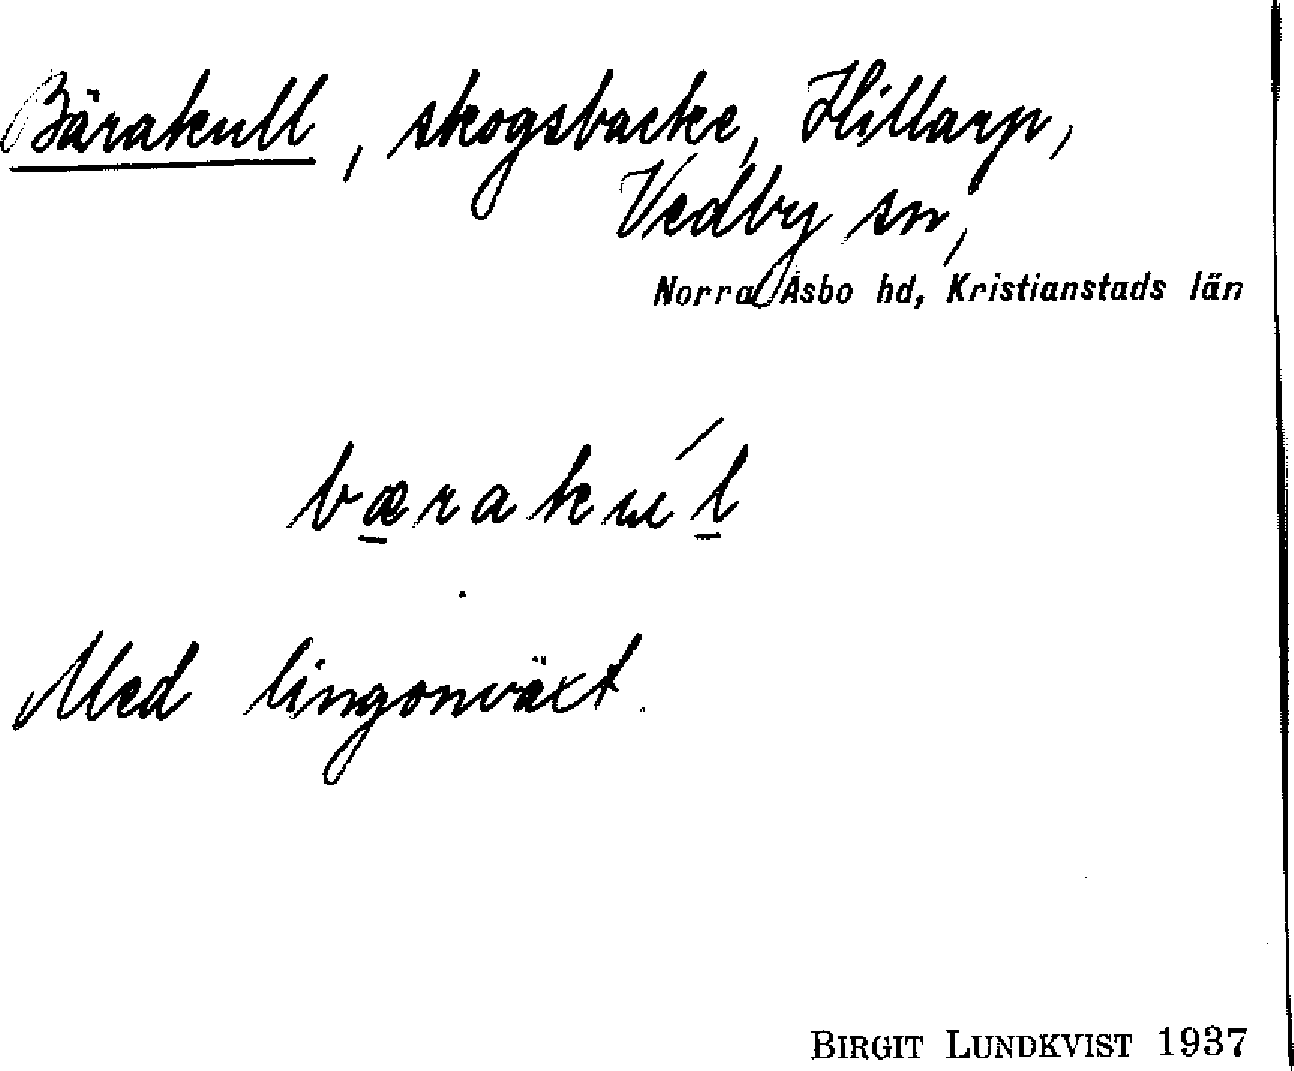 Bärakull, skogsbacke, Hillarp,
Vedby sn,
Norra Åsbo hd, Kristianstads län
bærakúl
Med lingonväxt.
BIRGIT LUNDKVIST 1937